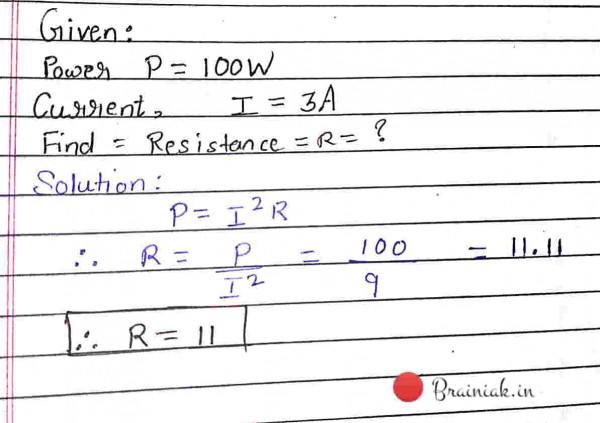 Given:
Power P = 100W
Current, I = 3A
Find = Resistance = R = ?
Solution:
P = I²R
∴ R = P/I² = 100/9 = 11.11
∴ R = 11
Brainiak.in